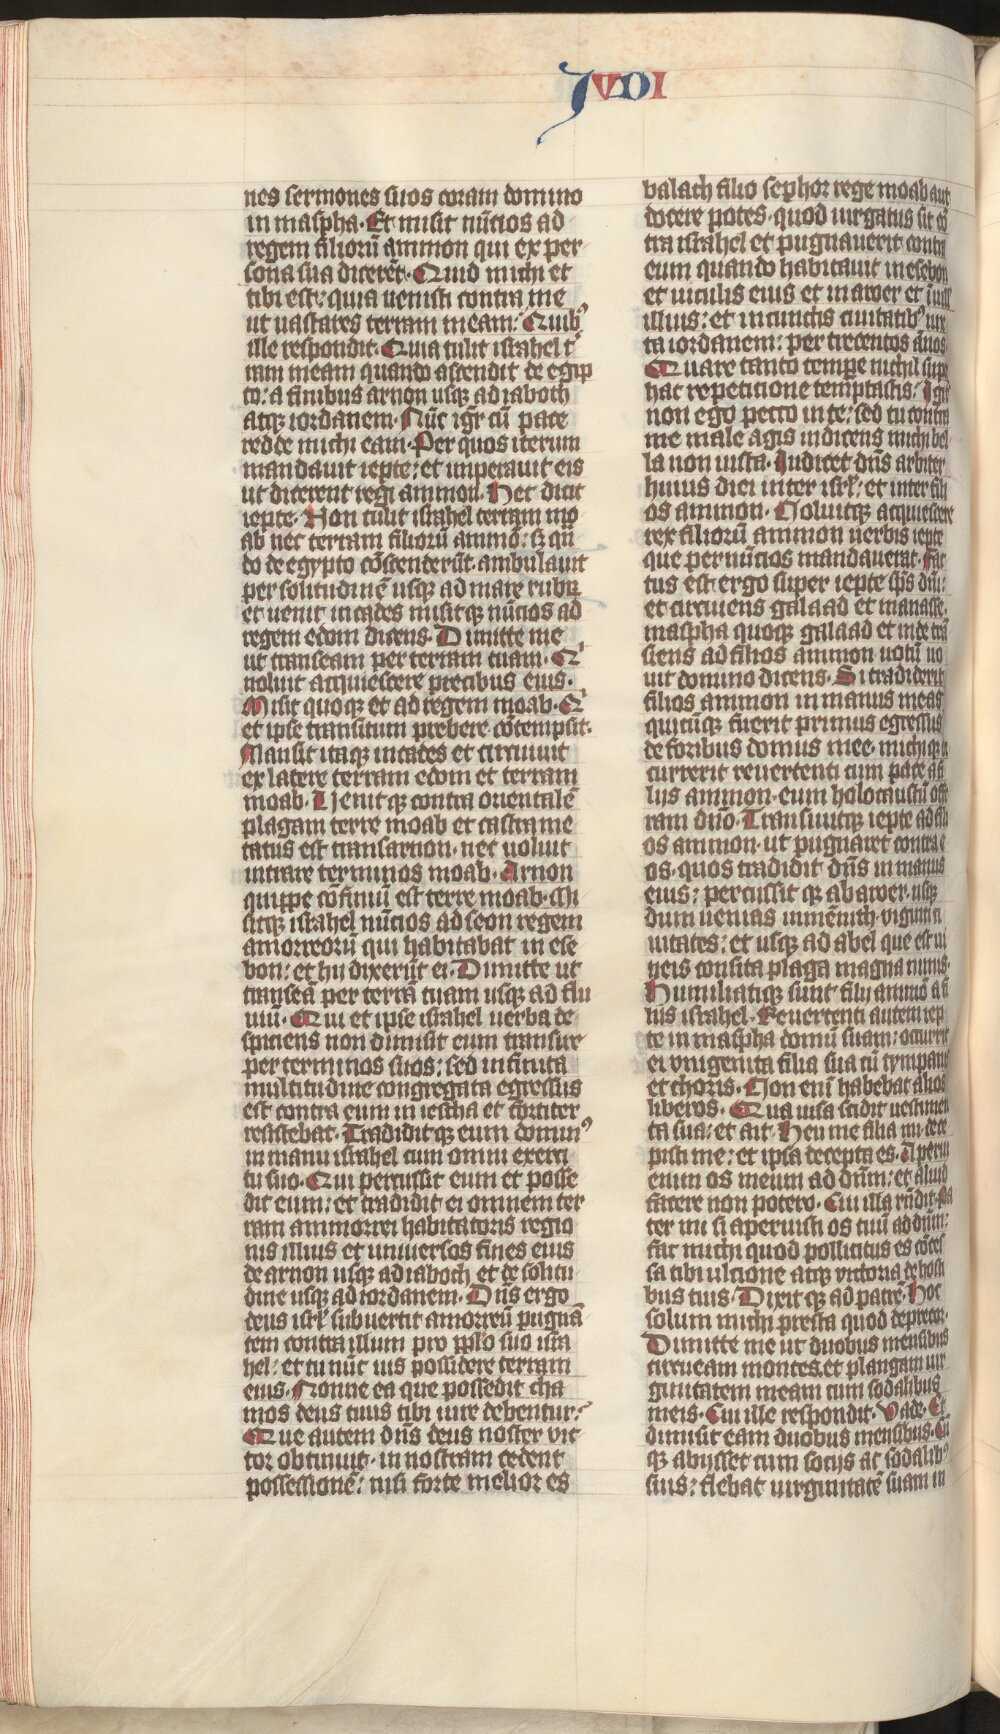 JUDI
nes sermones suos coram domino
in maspha. Et misit nūcios ad
regem filiorū ammon qui ex per
sona sua dicerēt. Quid michi et
tibi est: quia venisti contra me
ut vastares terram meam: Quibꝰ
ille respondit. Quia tulit israhel t'
ram meam quando ascendit de egip
to: a finibus arnon usqꝫ ad iaboch
atqꝫ iordanem. Nūc igr̄ cū pace
redde michi eam. Per quos iterum
mandavit iepte: et imperavit eis
ut dicerent regi ammon. Hec dicit
iepte. Non tulit israhel terram mo
ab nec terram filiorū ammō: sꝫ qn̄
do de egypto cōscenderūt ambulavit
per solitudinē usqꝫ ad mare rubrū
et venit in cades misitqꝫ nūcios ad
regem edom dicens. Dimitte me
ut transeam per terram tuam. Qi
noluit acquiescere precibus eius.
Misit quoqꝫ et ad regem moab. Qi
et ipse transitum prebere cōtempsit.
Mansit itaqꝫ in cades et circuivit
ex latere terram edom et terram
moab. Venitqꝫ contra orientalē
plagam terre moab et castrame
tatus est trans arnon. nec voluit
intrare terminos moab. Arnon
quippe cōfiniū est terre moab. Mi
sitqꝫ israhel nūcios ad seon regem
amorreorū qui habitabat in ese
bon: et hii dixerūt ei. Dimitte ut
transeā per terrā tuam usqꝫ ad flu
viū. Qui et ipse israhel verba de
spiciens non dimisit eum transire
per terminos suos: sed infinita
multitudine congregata egressus
est contra eum in iescha et fortiter
resistebat. Tradiditqꝫ eum dominꝰ
in manu israhel cum omni exerci
tu suo. Qui percussit eum et posse
dit eum: et tradidit ei omnem ter
ram ammorrei habitatoris regio
nis illius et universos fines eius
de arnon usqꝫ ad iaboch et de solitu
dine usqꝫ ad iordanem. Dn̄s ergo
deus isrl' subvertit amorreū pugnā
tem contra illum pro pplo suo isra
hel: et tu nūc vis possidere terram
eius. Nonne ea que possedit cha
mos deus tuus tibi iure debentur:
Que autem dn̄s deus noster vic
tor obtinuit. in nostram cedent
possessionē: nisi forte melior es
balach filio sephor rege moab aut
docere potes. quod iurgatus sit cō
tra israhel et pugnaverit contra
eum quando habitavit in esebon
et viculis eius et in aroer et in vill'
illius: et in cunctis civitatibꝰ iux
ta iordanem: per trecentos ānos
Quare tanto tempe nichil supe
hac repetitione temptastis: Igr̄
non ego pecco in te: sed tu contra
me male agis indicens michi bel
la non iusta. Iudicet dn̄s arbiter
huius diei inter isrl': et inter fili
os ammon. Noluitqꝫ acquiescere
rex filiorū ammon verbis iepte
que per nūcios mandaverat. Fac
tus est ergo super iepte sp̄s dn̄i:
et circuiens galaad et manasse.
maspha quoqꝫ galaad et inde trā
siens ad filios ammon votū vo
vit domino dicens. Si tradiderit
filios ammon in manus meas
quicūqꝫ fuerit primus egressus
de foribus domus mee. michiqꝫ oc
currerit revertenti cum pace a fi
liis ammon. eum holocaustū offe
ram dn̄o. Transivitqꝫ iepte ad fili
os ammon. ut pugnaret contra e
os. quos tradidit dn̄s in manus
eius: percussitqꝫ ab aroer. usqꝫ
dum venias in mēnith. viginti ci
vitates: et usqꝫ ad abel que est vi
neis consita plaga magna nimis.
Humiliatiqꝫ sunt filii ammō a fi
liis israhel. Revertenti autem iep
te in maspha domū suam: occurrit
ei unigenita filia sua cū tympanis
et choris. Non enī habebat alios
liberos. Qua visa scidit vestimen
ta sua: et ait. Heu me filia mi. dece
pisti me: et ipsa decepta es. Aperui
enim os meum ad dn̄m: et aliud
facere non potero. Cui illa rn̄dit. Pa
ter mi si aperuisti os tuū ad dn̄m:
fac michi quod pollicitus es cōces
sa tibi ulcione atqꝫ victoria de hosti
bus tuis. Dixitqꝫ ad patrē. Hoc
solum michi presta quod deprecor.
Dimitte me ut duobus mensibus
circueam montes. et plangam vir
ginitatem meam cum sodalibus
meis. Cui ille respondit. Vade. Et
dimisit eam duobus mensibus. Cū
qꝫ abiisset cum sociis ac sodalibꝰ
suis: flebat virginitatē suam in